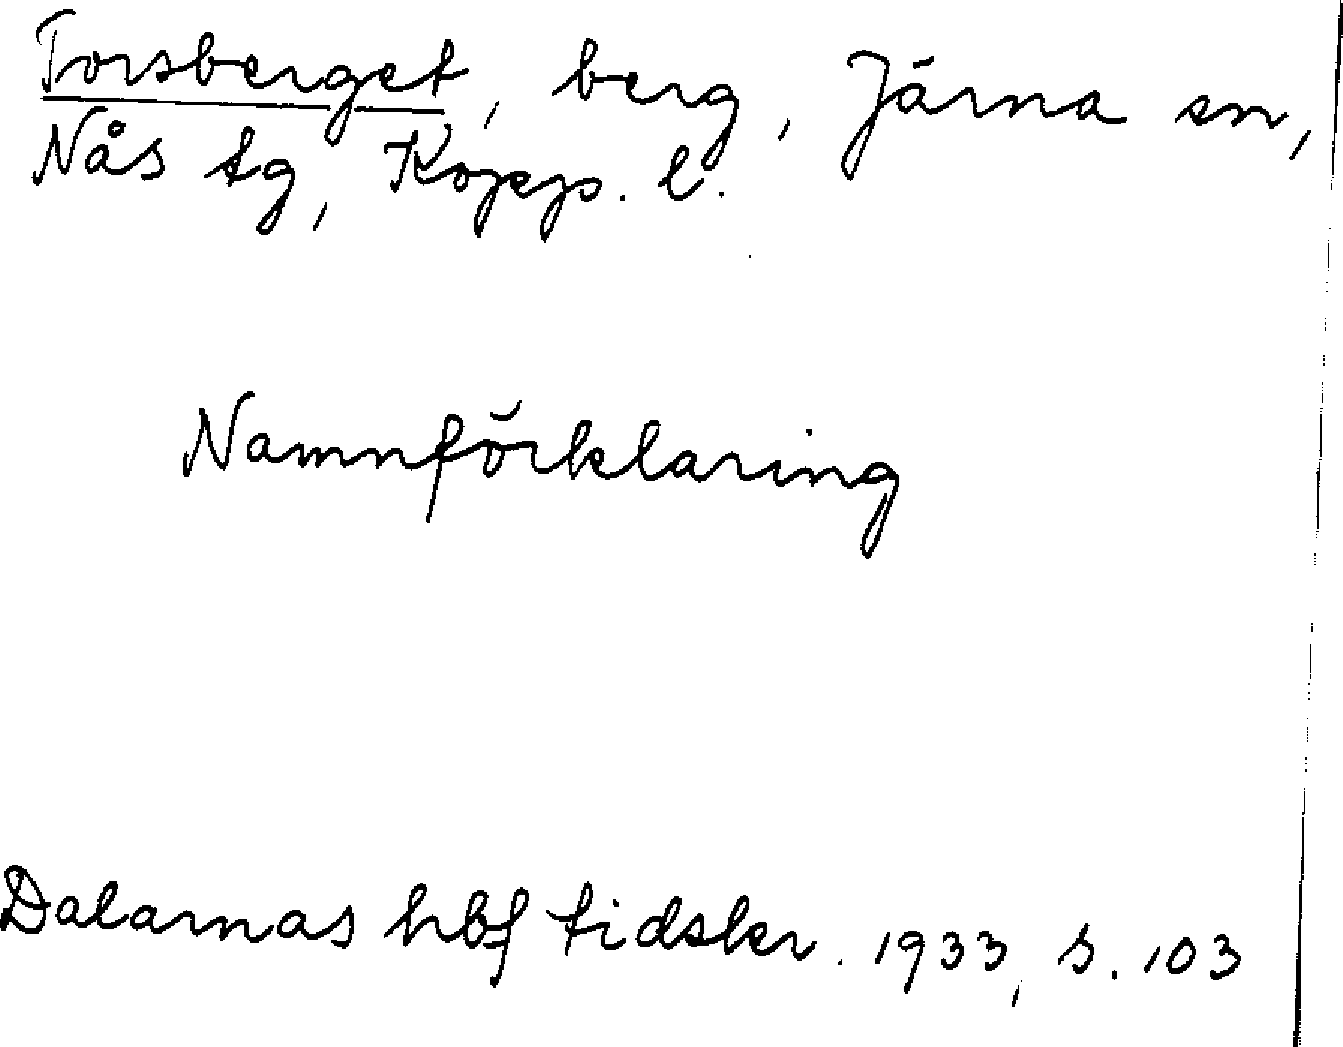 Torsberget, berg, Järna sn,
Nås tg, Kopp. l.
Namnförklaring
Dalarnas hbf tidskr. 1933, s. 103